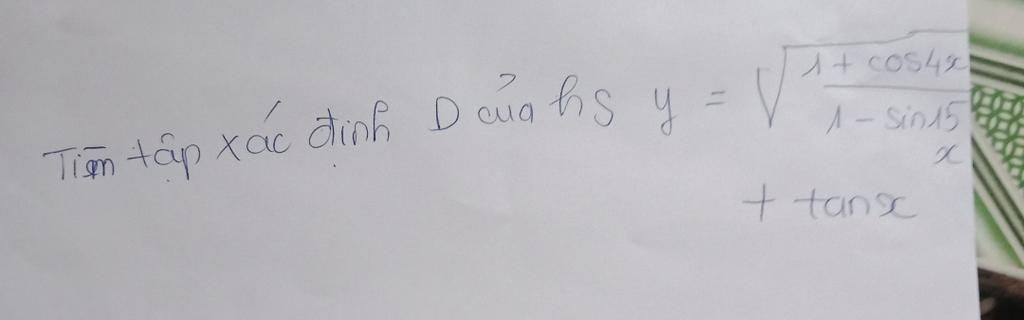 Tìm tập xác định D của hs y = √(1 + cos4x / 1 - sin15x)
+ tanx